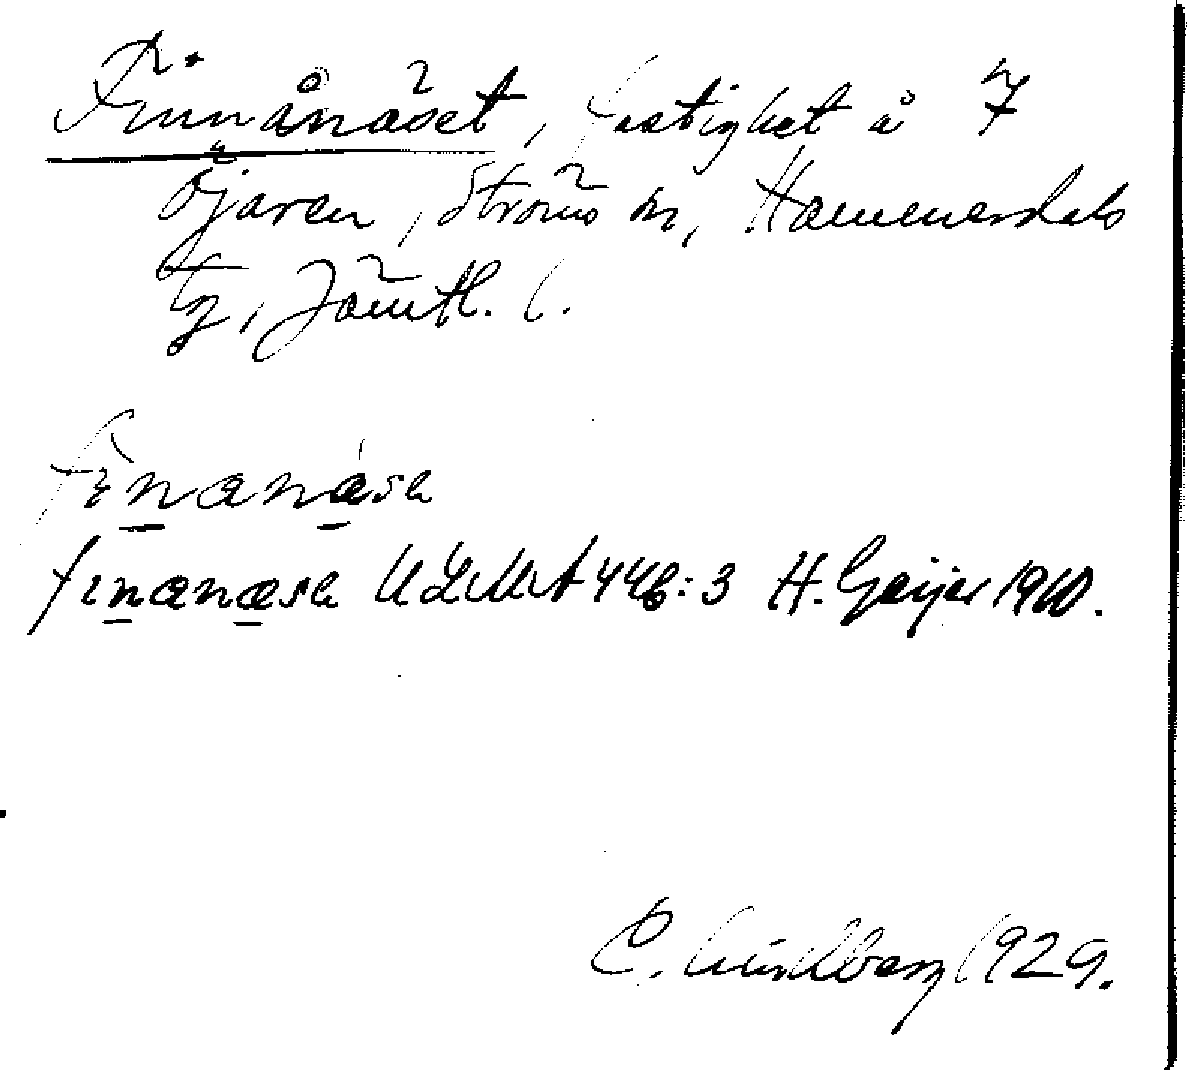 Finnånäset, fastighet å 7
Öjaren, Ströms sn, Hammerdals
tg, Jämtl. l.
finanásα
finanæsα ULMA 446:3 H. Geijer 1910.
C. Lindberg 1929.